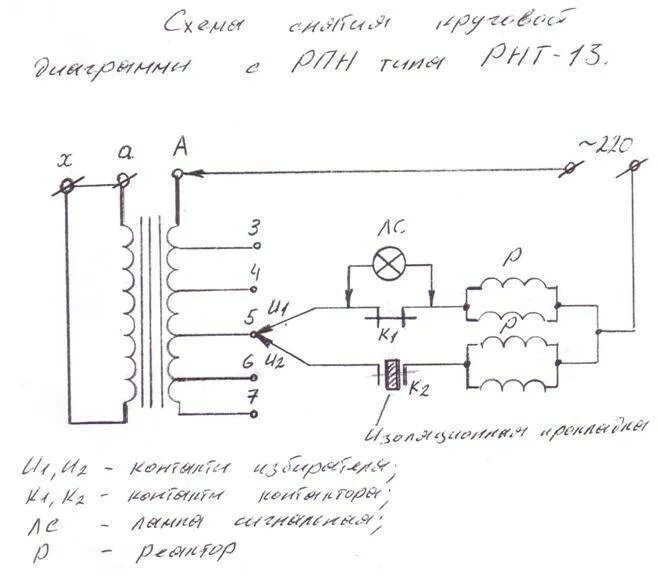 Схема снятия круговой
диаграммы с РПН типа РНТ-13.
х а А ~220
3
ЛС
Р
4
5 И1
К1
Р
И2
6
К2
7
Изоляционная прокладка
И1, И2 - контакты избирателя;
К1, К2 - контакты контактора;
ЛС - лампа сигнальная;
Р - реактор